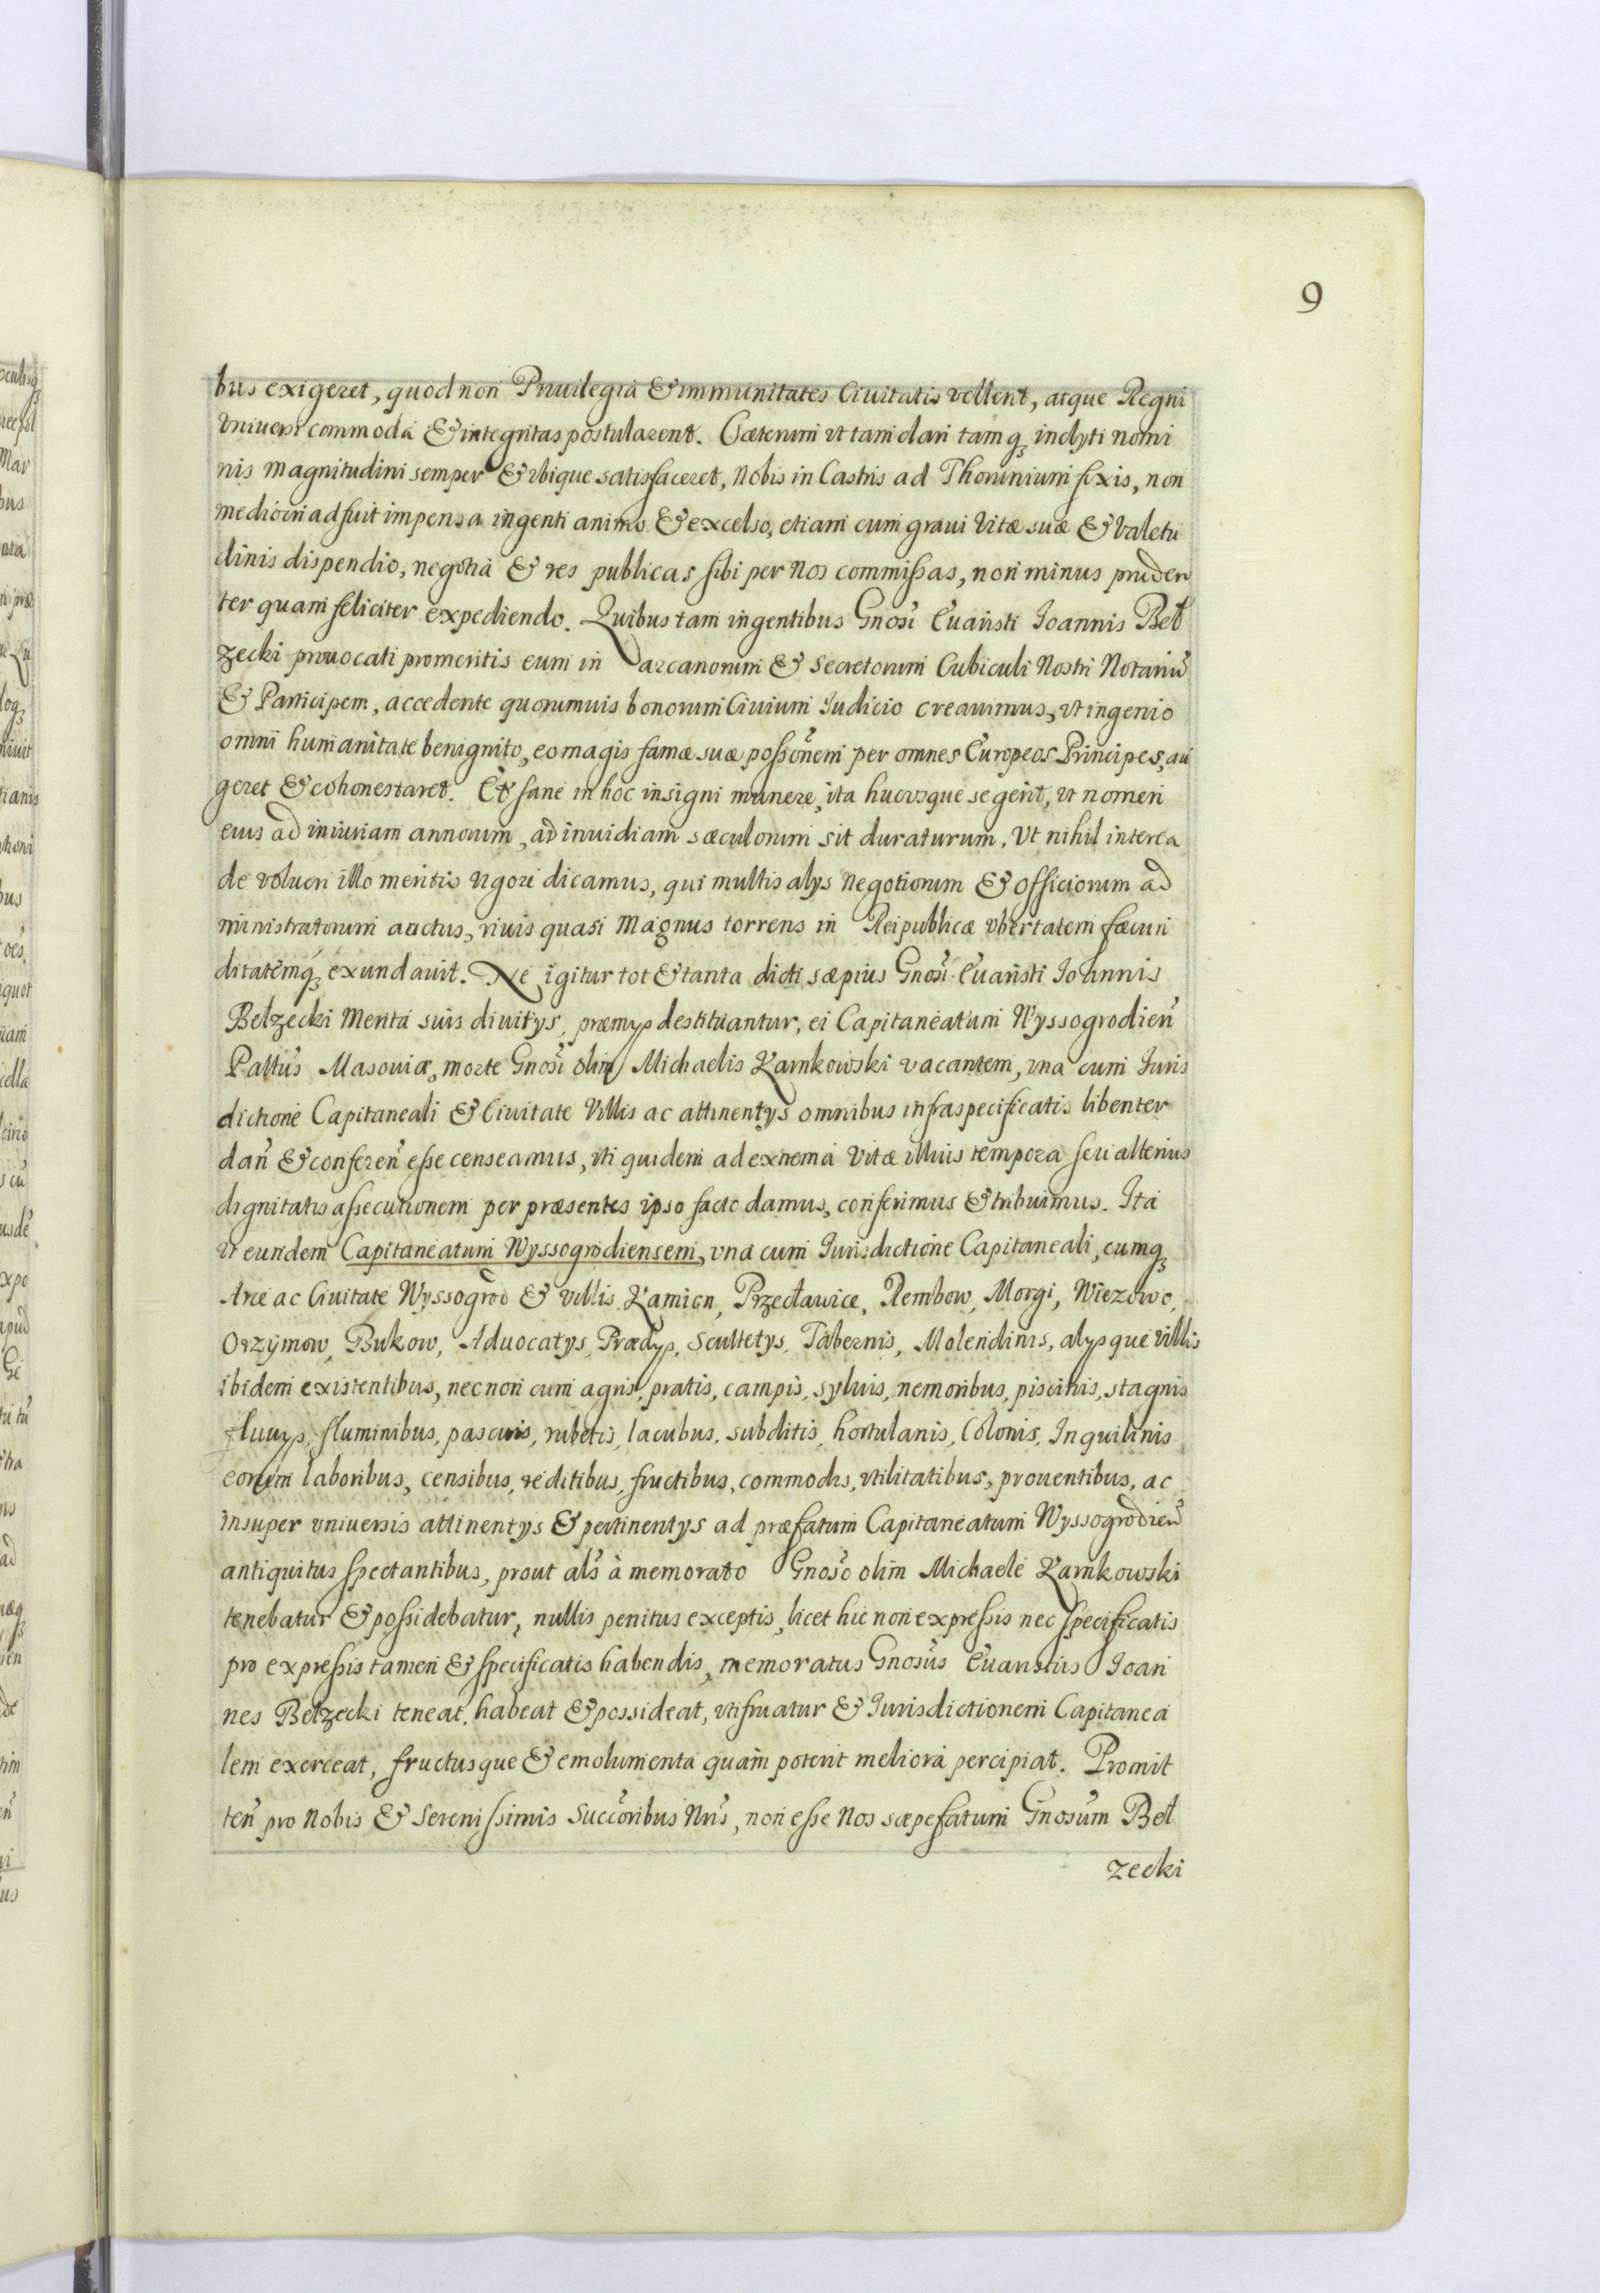 9
bus exigeret, quod non Priuilegia & immunitates Ciuitatis vellent, atque Regni
Vniuersi commoda & integritas postularent. Cæterum vt tam clari tamq₃ inclyti nomi
nis magnitudini semper & vbique satisfaceret, Nobis in Castris ad Thorunium fixis, non
mediocri adfuit impensa ingenti animo & excelso, etiam cum graui Vitæ suæ & Valetu
dinis dispendio, negotia & res publicas sibi per Nos commissas, non minus pruden
ter quam feliciter expediendo. Quibus tam ingentibus Gnosi Euaristi Joannis Beł
zecki prouocati promeritis eum in arcanorum & Secretorum Cubiculi Nostri Notariũ
& Participem, accedente quorumuis bonorum Ciuium Judicio creauimus, vt ingenio
omni humanitate benignito, eo magis famæ suæ possõnem per omnes Europeos Principes, au
geret & cohonestaret. Et sane in hoc insigni munere, ita hucvsque se gerit, vt nomen
eius ad iniuriam annorum, ad inuidiam sæculorum sit duraturum. Vt nihil interea
de volucri illo meritis vigori dicamus, qui multis alys Negotiorum & Officiorum ad
ministratorum auctus, riuis quasi Magnus torrens in Reipublicæ vbertatem fæcun
ditatemq₃ exundauit. Ne igitur tot & tanta dicti sæpius Gnosi Euaristi Joannis
Bełzecki Merita suis diuitys, præmys destituantur, ei Capitaneatum Wyssogrodieñ
Pałtus Masouiæ, morte Gnosi olim Michaelis Karnkowski vacantem, vna cum Juris
dictione Capitaneali & Ciuitate Villis ac attinentys omnibus infraspecificatis libenter
dañ & confereñ esse censeamus, vti quidem ad extrema Vitæ illius tempora seu alterius
dignitatis assecutionem per præsentes ipso facto damus, conferimus & tribuimus. Ita
vt eundem Capitaneatum Wyssogrodiensem, vna cum Jurisdictione Capitaneali, cumq₃
Arce ac Ciuitate Wyssogrod & villis Kamien, Przecławice, Rembow, Morgi, Wiezowo,
Orzÿmow, Bukow, Aduocatys, Prædys, Scultetys, Tabernis, Molendinis, alysque villis
ibidem existentibus, nec non cum agris, pratis, campis, syluis, nemoribus, piscinis, stagnis
fluuys, fluminibus, pascuis, rubetis, lacubus, subditis, hortulanis, Colonis, Inquilinis
eorum laboribus, censibus, reditibus, fructibus, commodis, vtilitatibus, prouentibus, ac
insuper vniuersis attinentys & pertinentys ad præfatum Capitaneatum Wyssogrodieñ
antiquitus spectantibus, prout als à memorato Gnoso olim Michaele Karnkowski
tenebatur & possidebatur, nullis penitus exceptis, licet hic non expressis nec specificatis
pro expressis tamen & specificatis habendis, memoratus Gnosus Euaristus Joan
nes Bełzecki teneat, habeat & possideat, vtifruatur & Jurisdictionem Capitanea
lem exerceat, fructusque & emolumenta quam poterit meliora percipiat. Promit
teñ pro Nobis & Serenissimis Succoribus Nris, non esse Nos sæpefatum Gnosum Beł
zecki